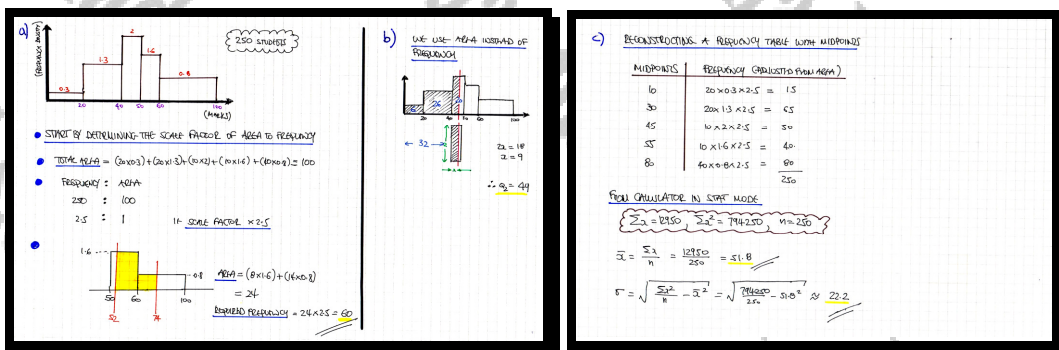 a)
(FREQUENCY DENSITY)
0.3
1.3
2
1.6
0.8
20 40 50 60 100
(MARKS)
250 STUDENTS
START BY DETERMINING THE SCALE FACTOR OF AREA TO FREQUENCY
TOTAL AREA = (20×0.3)+(20×1.3)+(10×2)+(10×1.6)+(40×0.8) = 100
FREQUENCY : AREA
250 : 100
2.5 : 1 IE SCALE FACTOR ×2.5
1.6
0.8
50 60 100
52 74
AREA = (8×1.6)+(14×0.8)
= 24
REQUIRED FREQUENCY = 24×2.5 = 60
b)
WE USE AREA INSTEAD OF
FREQUENCY
6 26 20
20 40 60 100
← 32 →
2
x
2x = 18
x = 9
∴ Q₂ = 49
c)
RECONSTRUCTING A FREQUENCY TABLE WITH MIDPOINTS
MIDPOINTS FREQUENCY (ADJUSTED FROM AREA)
10 20×0.3×2.5 = 15
30 20×1.3×2.5 = 65
45 10×2×2.5 = 50
55 10×1.6×2.5 = 40
80 40×0.8×2.5 = 80
250
FROM CALCULATOR IN STAT MODE
Σx = 12950, Σx² = 794250, n = 250
x̄ = Σx/n = 12950/250 = 51.8
σ = √(Σx²/n − x̄²) = √(794250/250 − 51.8²) ≈ 22.2